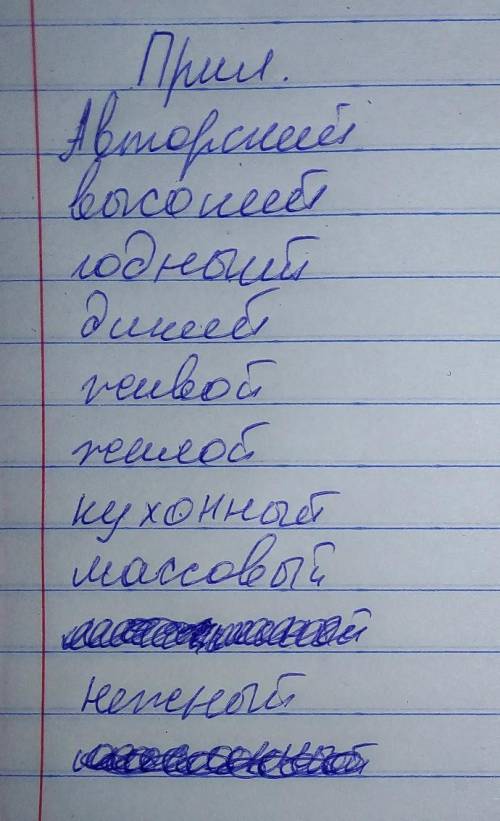 Прил.
Авторский
высокий
годный
дикий
живой
жилой
кухонный
массовый
нежный